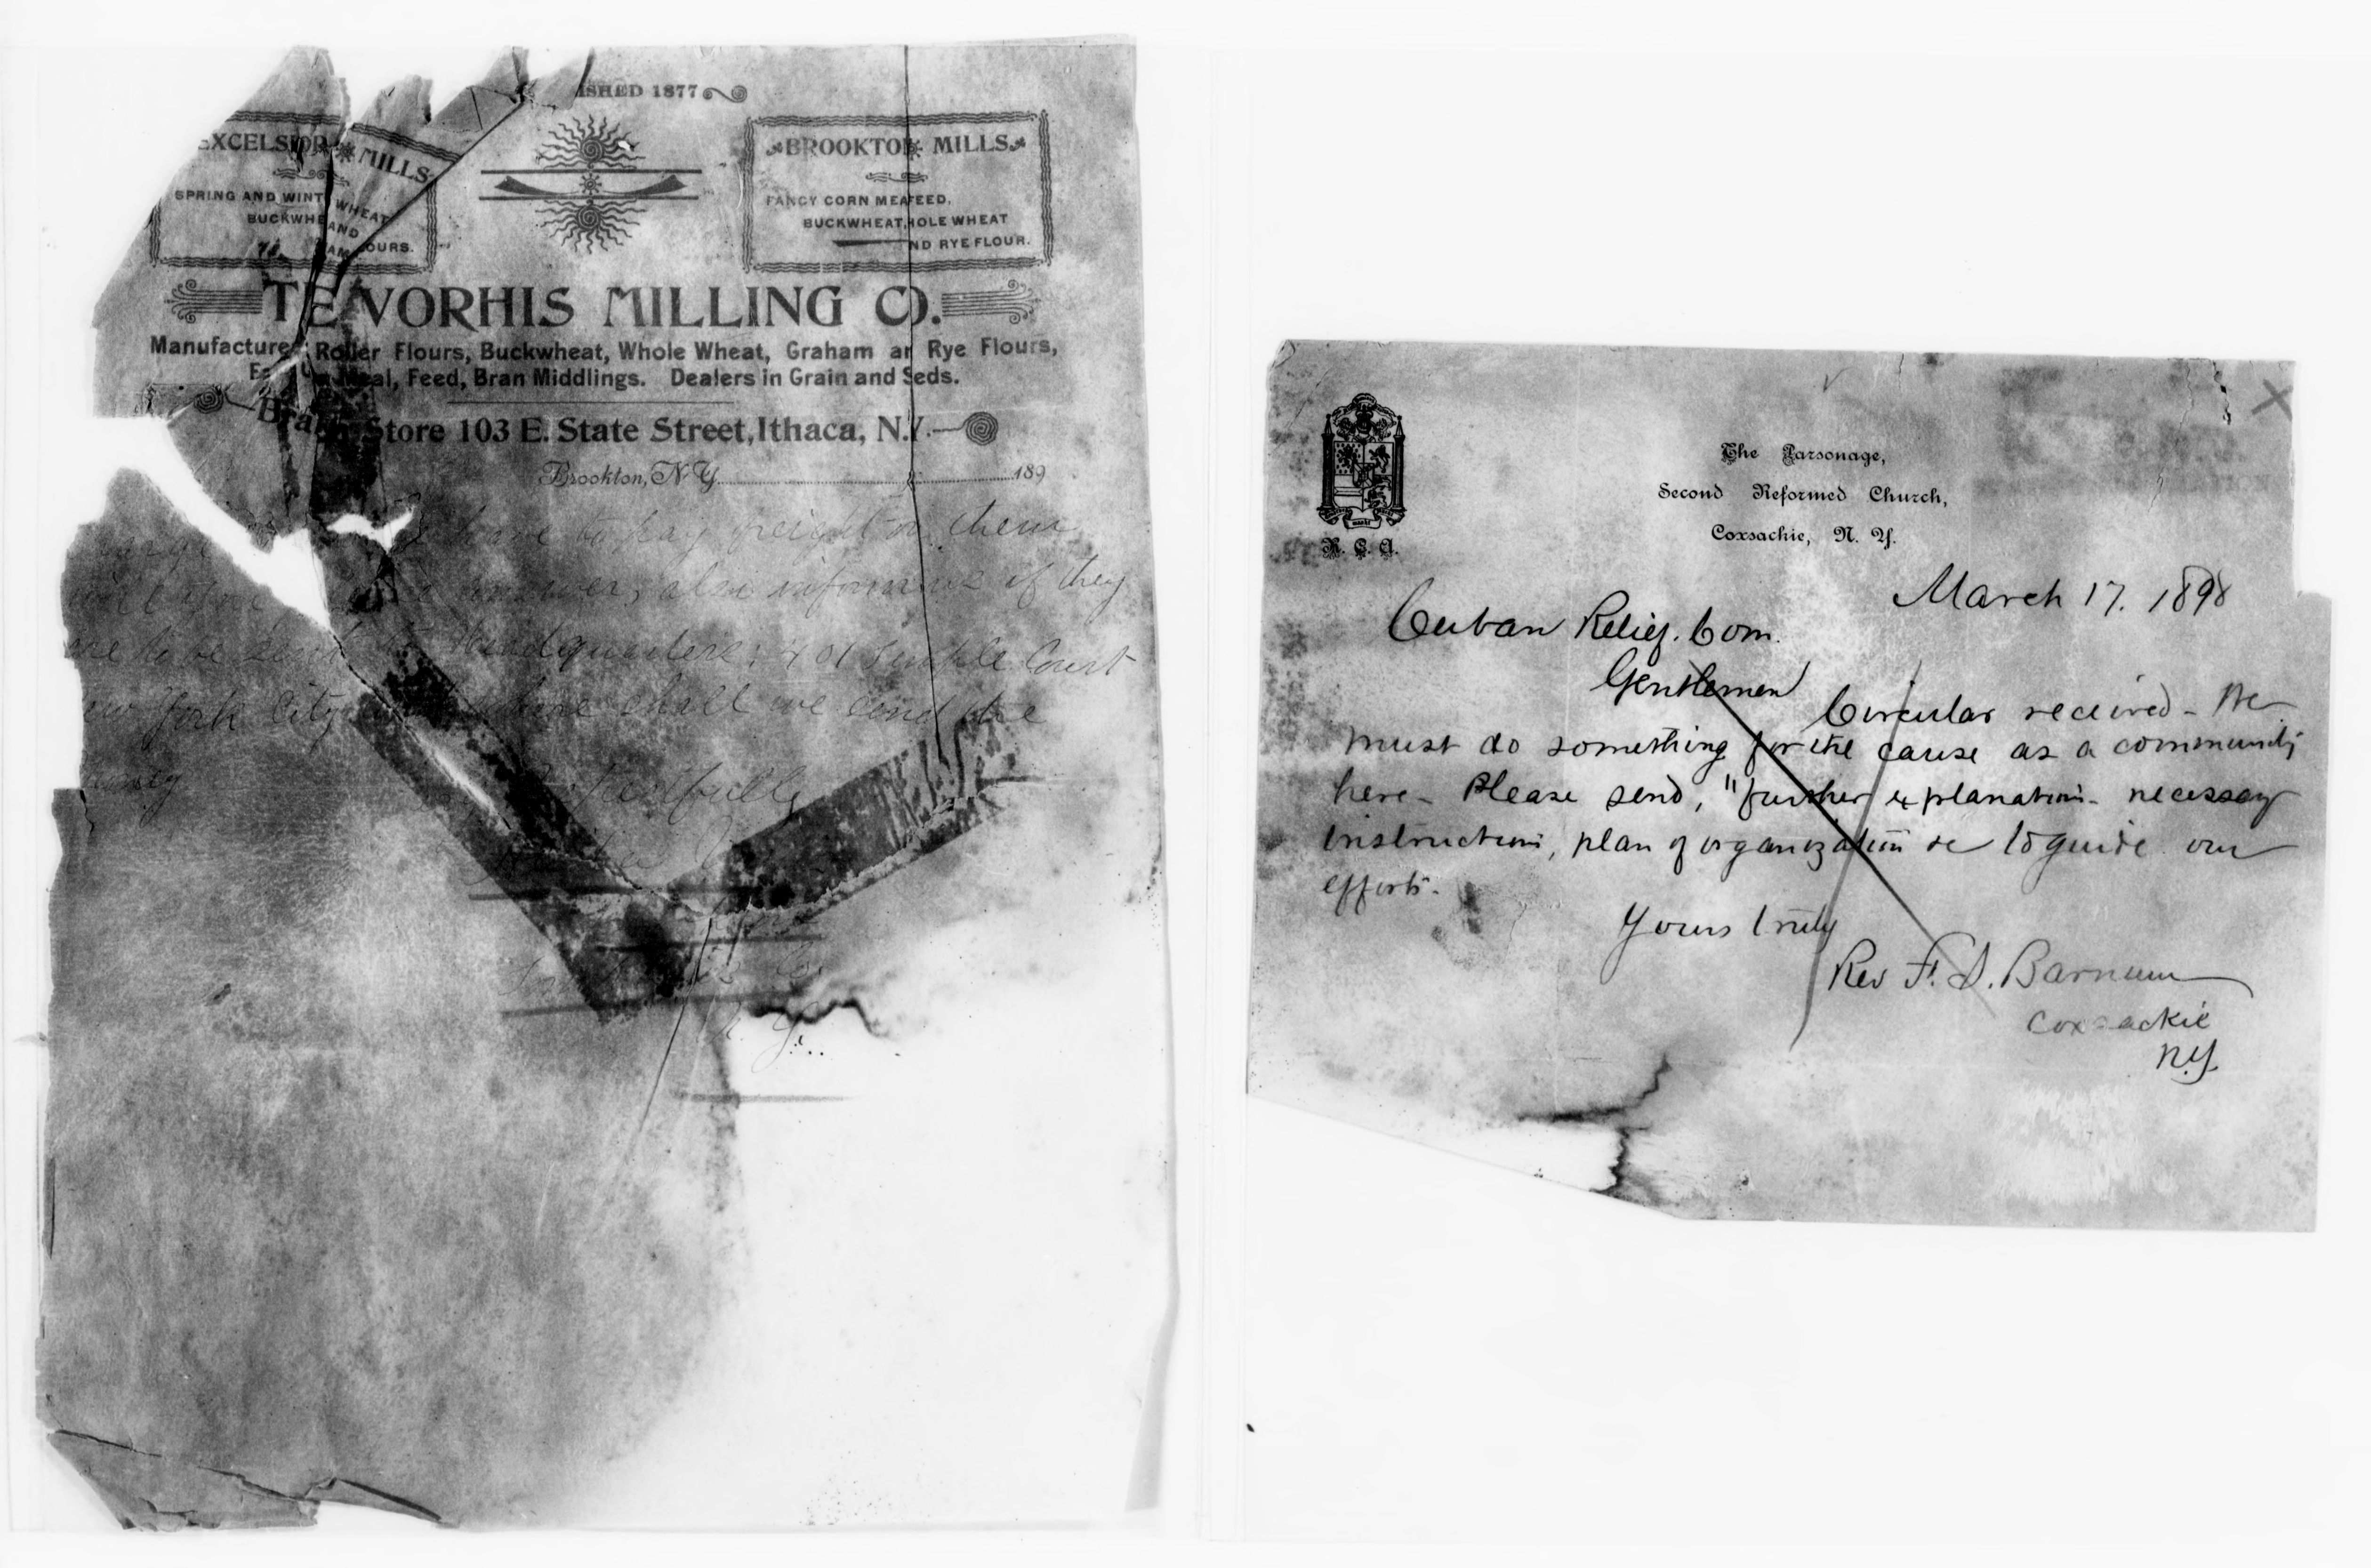 ISHED 1877
EXCELSIOR MILLS
SPRING AND WINT WHEAT
BUCKWHE AND
OURS.
BROOKTON MILLS
FANCY CORN MEA FEED,
BUCKWHEAT, HOLE WHEAT
ND RYE FLOUR.
TE VORHIS MILLING CO.
Manufacture Roller Flours, Buckwheat, Whole Wheat, Graham an Rye Flours,
Meal, Feed, Bran Middlings. Dealers in Grain and Seds.
Bra Store 103 E. State Street, Ithaca, N.Y.
Brookton, N. Y. 189
have to pay freight on them
answer, also inform us if they
are to be sent to Headquarters: 401 Temple Court
York City where shall we send the
money
N. Y.
The Parsonage,
Second Reformed Church,
Coxsackie, N. Y.
R. C. A.
March 17. 1898
Cuban Relief. Com.
Gentlemen
Circular received - We
must do something for the cause as a community
here - Please send, "further explanation - necessary
instruction, plan of organization &c to guide our
efforts.
Yours truly
Rev F. S. Barnum
Coxsackie
N.Y.